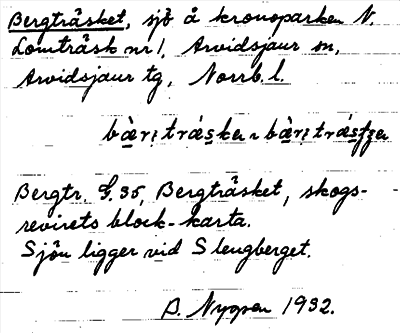 Bergträsket, sjö å kronoparken N.
Lomträsk nr 1, Arvidsjaur sn,
Arvidsjaur tg, Norrb. l.
Bergtr. G. 35, Bergträsket, skogs-
revirets block-karta.
Sjön ligger vid Slengberget.
1932.